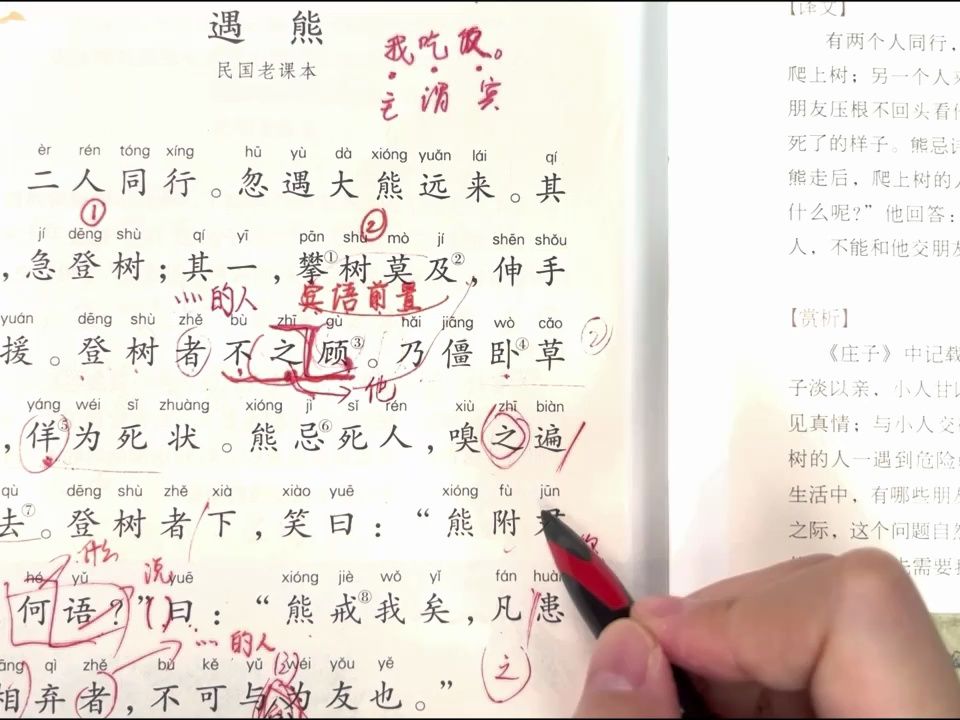 遇 熊
民国老课本
我吃饭。
主 谓 宾
èr rén tóng xíng hū yù dà xióng yuǎn lái qí
二人同行。忽遇大熊远来。其
① ②
jí dēng shù qí yī pān shù mò jí shēn shǒu
，急登树；其一，攀树①莫及②，伸手
的人 宾语前置
yuán dēng shù zhě bù zhī gù nǎi jiāng wò cǎo
援。登树者不之顾③。乃僵卧④草
②
他
yáng wéi sǐ zhuàng xióng jì sǐ rén xiù zhī biàn
，佯⑤为死状。熊忌⑥死人，嗅之遍
qù dēng shù zhě xià xiào yuē xióng fù jūn
去⑦。登树者下，笑曰：“熊附君
什么 说
hé yǔ yuē xióng jiè wǒ yǐ fán huàn
何语？”曰：“熊戒⑧我矣，凡患
的人 之
qì zhě bù kě yǔ wéi yǒu yě
相弃者，不可与为友也。”
【译文】
有两个人同行，
爬上树；另一个人
朋友压根不回头看
死了的样子。熊忌
熊走后，爬上树的人
什么呢？”他回答：
人，不能和他交朋
【赏析】
《庄子》中记载
子淡以亲，小人甘
见真情；与小人交
树的人一遇到危险
生活中，有哪些朋
之际，这个问题自
需要